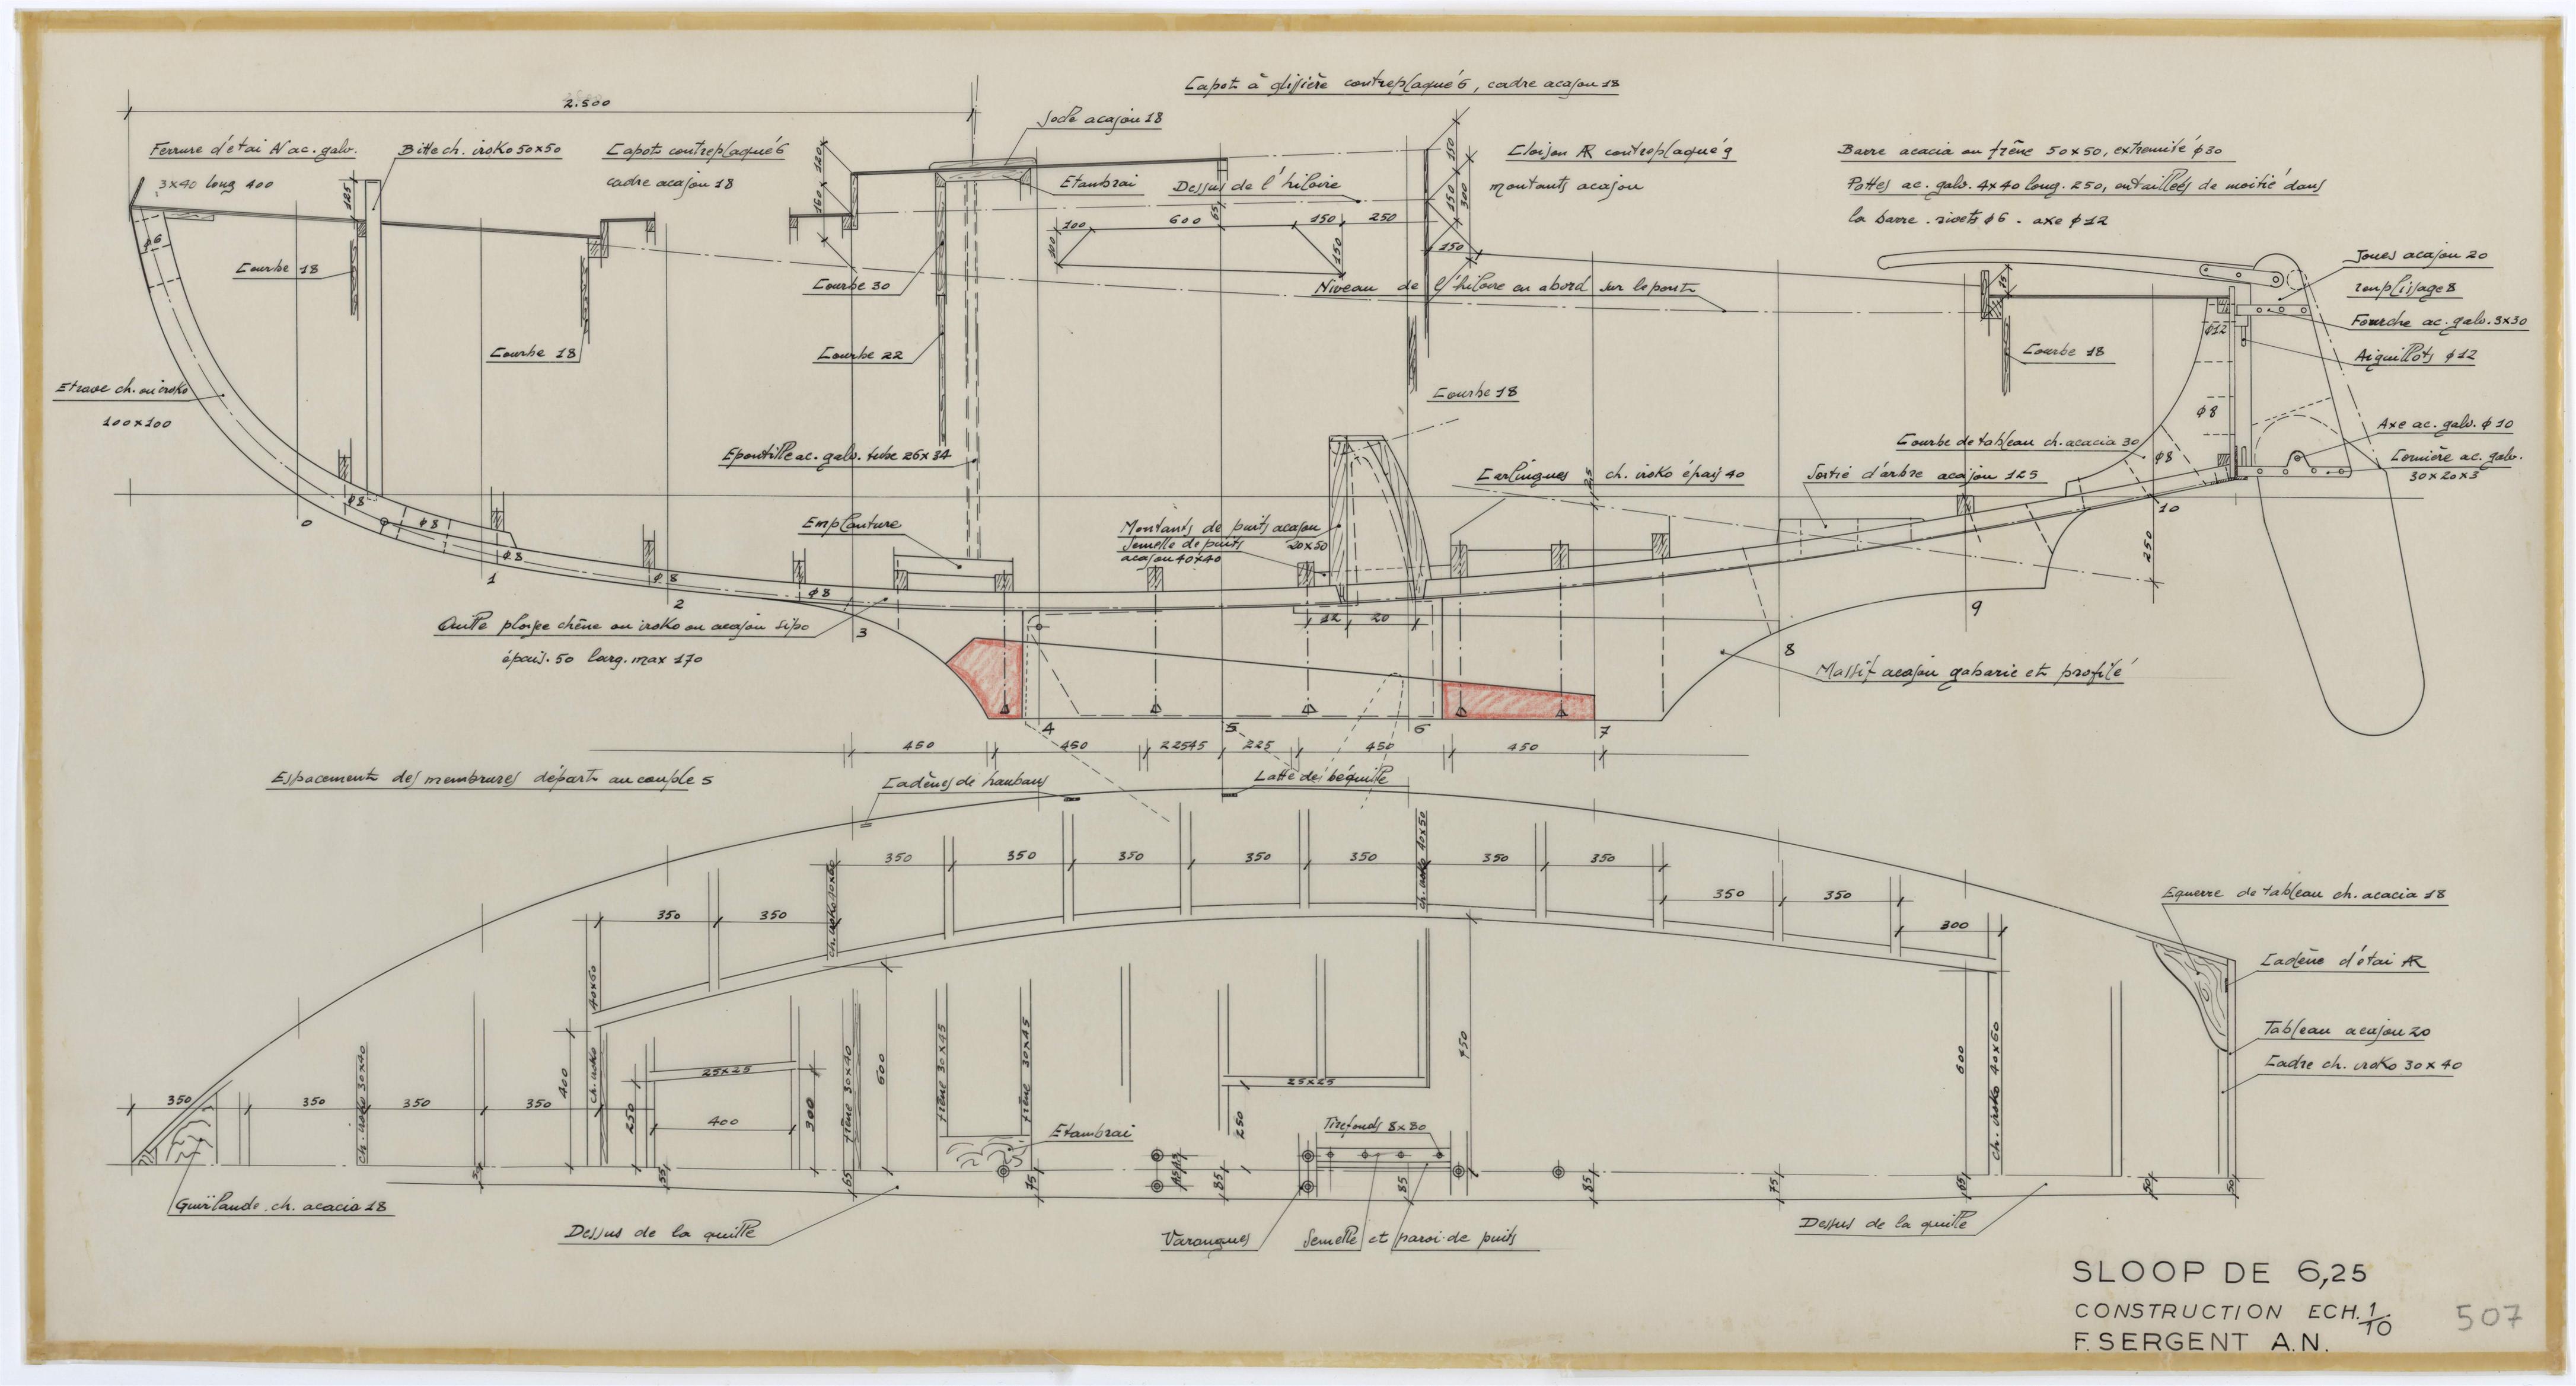 Capot à glissière contreplaqué 6, cadre acajou 18
2.500
Socle acajou 18
Ferrure d'étai AV ac. galv.
3x40 long 400
Bitte ch. iroko 50x50
Capot contreplaqué 6
cadre acajou 18
185
120
160
Etambrai
Dessus de l'hiloire
Cloison AR contreplaqué 9
montants acajou
Barre acacia ou frêne 50x50, extremité ϕ30
Pattes ac. galv. 4x40 long. 250, entaillées de moitié dans
la barre. rivets ϕ6 - axe ϕ12
150
150
300
150
100
600
65
150
250
150
ϕ6
Courbe 18
Courbe 30
Niveau de l'hiloire en abord sur le pont
Joues acajou 20
remplissage 8
Fourche ac. galv. 3x30
Aiguillots ϕ12
ϕ12
Courbe 18
Courbe 22
Courbe 18
Courbe 18
Etrave ch. ou iroko
100x100
ϕ8
Axe ac. galv. ϕ10
Cornière ac. galv.
30x20x3
Courbe de tableau ch. acacia 30
ϕ8
Epontille ac. galv. tube 26x34
Carlingues ch. iroko épais 40
Sortie d'arbre acajou 125
Emplanture
Montants de puits acajou
20x50
Semelle de puits
acajou 40x40
ϕ8
ϕ8
ϕ8
ϕ8
ϕ8
0
1
2
3
4
5
6
7
8
9
10
250
12
20
Quille ployée chêne ou iroko ou acajou sipo
épais. 50 larg. max 170
Massif acajou gabarié et profilé
450
450
225
45
225
450
450
Espacement des membrures départ au couple 5
Cadènes de haubans
Latte de béquille
350
350
350
350
350
350
350
350
350
350
350
300
ch. iroko 40x60
ch. iroko 40x50
Equerre de tableau ch. acacia 18
Cadène d'étai AR
Tableau acajou 20
Cadre ch. iroko 30x40
350
350
350
350
ch. iroko 30x40
400
ch. iroko 40x50
250
25x25
400
300
frêne 30x40
600
frêne 30x45
frêne 30x45
25x25
250
950
600
ch. iroko 40x60
Etambrai
Tirefonds 8x80
55
65
75
45
45
85
85
85
75
65
50
50
Guirlande ch. acacia 18
Dessus de la quille
Varangues
Semelle et paroi de puits
Dessus de la quille
SLOOP DE 6,25
CONSTRUCTION ECH. 1/10
F. SERGENT A.N.
507